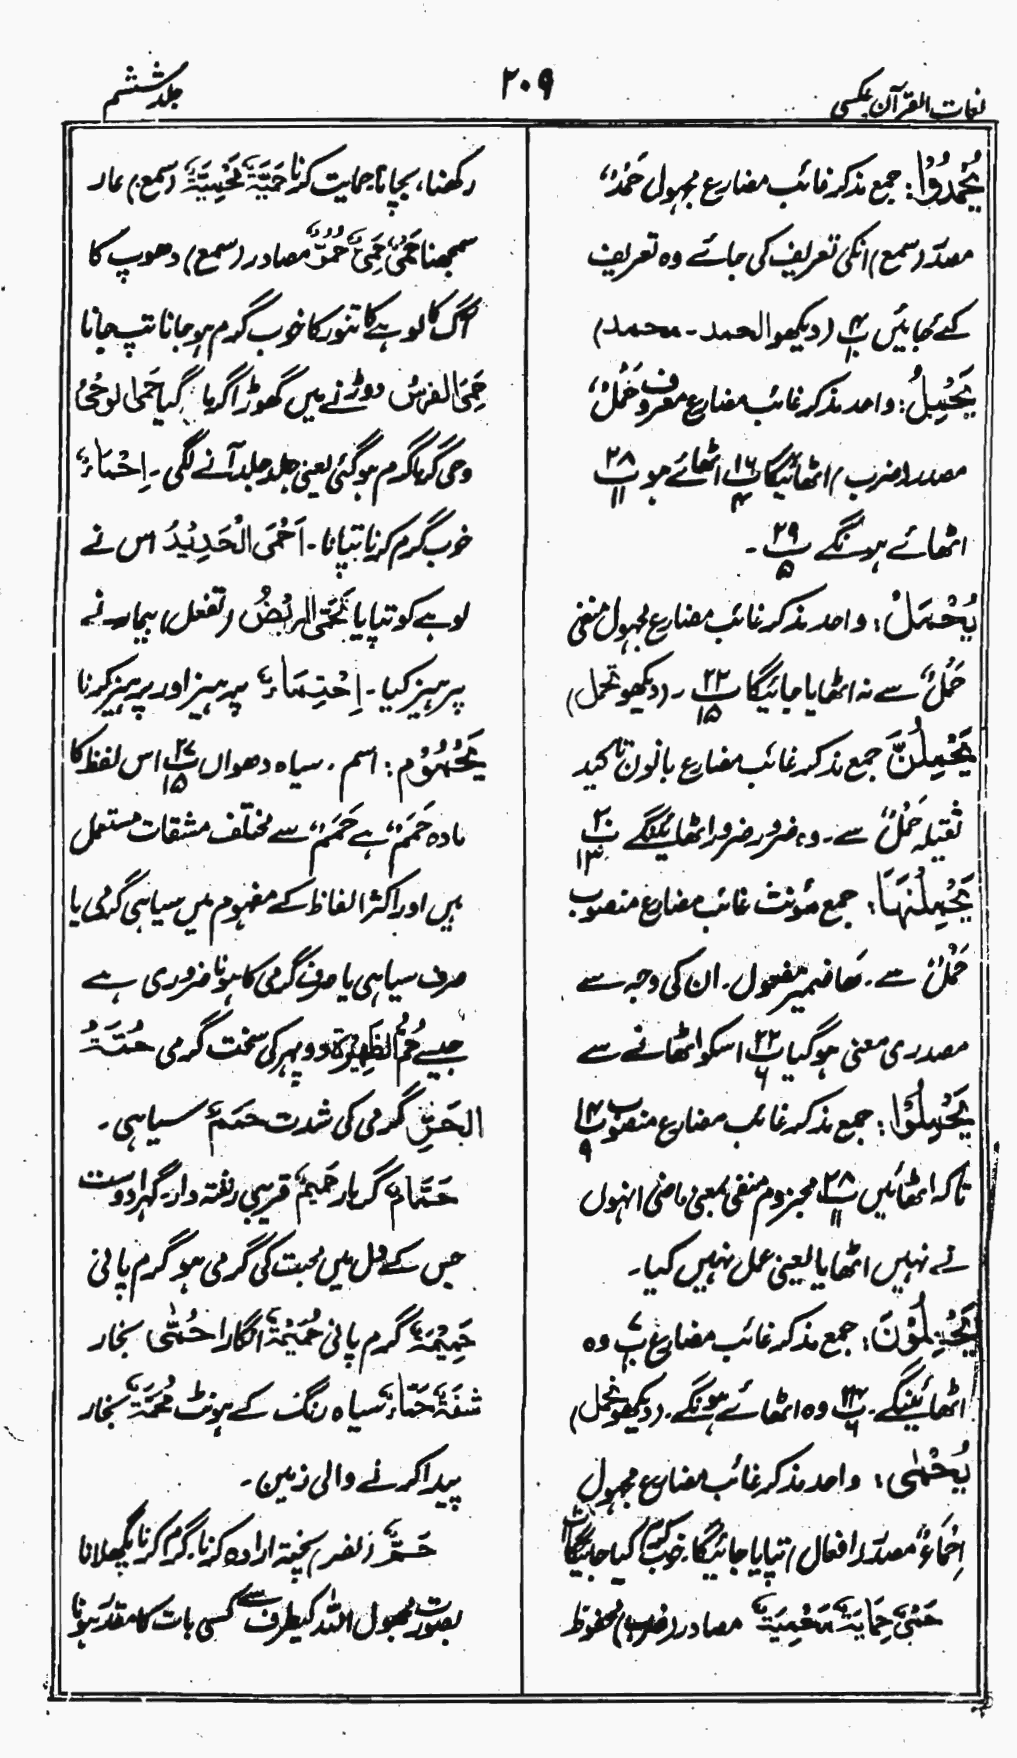 لغات القرآن عکسی
۲۰۹
جلد ششم
یُحْمَدُوْا: جمع مذکر غائب مضارع مجہول حَمْدٌ،
مصدر (سمع) انکی تعریف کی جائے وہ تعریف
کئے جائیں پ۴/۱۰ (دیکھو الحمد ـ محمد)
یَحْمِلُ: واحد مذکر غائب مضارع معروف حَمْلٌ،
مصدر (ضرب) اٹھائیگا پ۱۶/۴ اٹھائے ہو پ۲۸/۱۱
اٹھائے ہونگے پ۲۹/۵ ۔
یُحْمَلْ: واحد مذکر غائب مضارع مجہول منفی
حَمْلٌ سے نہ اٹھایا جائیگا پ۲۲/۱۵ ۔ (دیکھو تحمل)
یَحْمِلُنَّ جمع مذکر غائب مضارع بانون تاکید
ثقیلہ حَمْلٌ سے ۔ وہ ضرور ضرور اٹھائینگے پ۲۰/۱۳
یَحْمِلْنَہَا: جمع مؤنث غائب مضارع منصوب
حَمْلٌ سے ۔ ھا ضمیر مفعول ۔ ان کی وجہ سے
مصدری معنی ہوگیا پ۲۲/۶ اسکو اٹھانے سے
یَحْمِلُوْا: جمع مذکر غائب مضارع منصوب پ۱۴/۹
تاکہ اٹھائیں پ۲۸/۱۱ مجزوم منفی بمعنی ماضی انہوں
نے نہیں اٹھایا یعنی عمل نہیں کیا ۔
یَحْمِلُوْنَ: جمع مذکر غائب مضارع پ۷/۱۰ وہ
اٹھائینگے ۔ پ۲۴/۶ وہ اٹھائے ہونگے ۔ (دیکھو تحمل)
یُحْمٰی: واحد مذکر غائب مضارع مجہول
اِحْمَاءٌ مصدر (افعال) تپایا جائیگا خوب گرم کیا جائیگا
حَمْیٌ حِمَایَۃٌ مَحْمِیَۃٌ مصادر (ضرب) محفوظ
رکھنا، بچانا حمایت کرنا حَمِیَّۃٌ مَحْمِیَّۃٌ (سمع) عار
سمجھنا حَمْیٌ حَمِیٌّ حُمُوٌّ مصادر (سمع) دھوپ کا
آگ کا لوہے کا تنور کا خوب گرم ہو جانا تپ جانا
حَمِیَ الفرسُ دوڑنے میں گھوڑا گرما گیا حَمَا الوحیُ
وحی گرما گرم ہوگئی یعنی جلد جلد آنے لگی ۔ اِحْمَاءٌ
خوب گرم کرنا تپانا ۔ اَحْمَی الْحَدِیْدُ اس نے
لوہے کو تپایا تَحَمَّی المریْضُ (تفعل) بیمار نے
پرہیز کیا ۔ اِحْتِمَاءٌ پرہیز اور پرہیز کرنا
یَحْمُوْم: اسم ۔ سیاہ دھواں پ۲۷/۱۵ اس لفظ کا
مادہ حَمَمٌ ہے حَمَمٌ سے مختلف مشتقات مستعمل
ہیں اور اکثر الفاظ کے مفہوم میں سیاہی گرمی یا
صرف سیاہی یا صرف گرمی کا ہونا ضروری ہے
جیسے حُمُّ الظَّہِیْرَۃِ دوپہر کی سخت گرمی حُمَّۃُ
الحَرِّ گرمی کی شدت حَمَمٌ سیاہی ۔
حَمَّامٌ گرمابہ حَمِیْمٌ قریبی رشتہ دار ۔ گہرا دوست
جس کے دل میں محبت کی گرمی ہو گرم پانی
حَمِیْمَۃٌ گرم پانی حُمَیْمَۃٌ انگارا حُمّٰی بخار
شَفَۃٌ حَمَّاءُ سیاہ رنگ کے ہونٹ مُحِمَّۃٌ بخار
پیدا کرنے والی زمین ۔
حَمٌّ (نصر) پختہ ارادہ کرنا ۔ گرم کرنا پگھلانا
بصورت مجہول اللہ کیطرف سے کسی بات کا مقدر ہونا